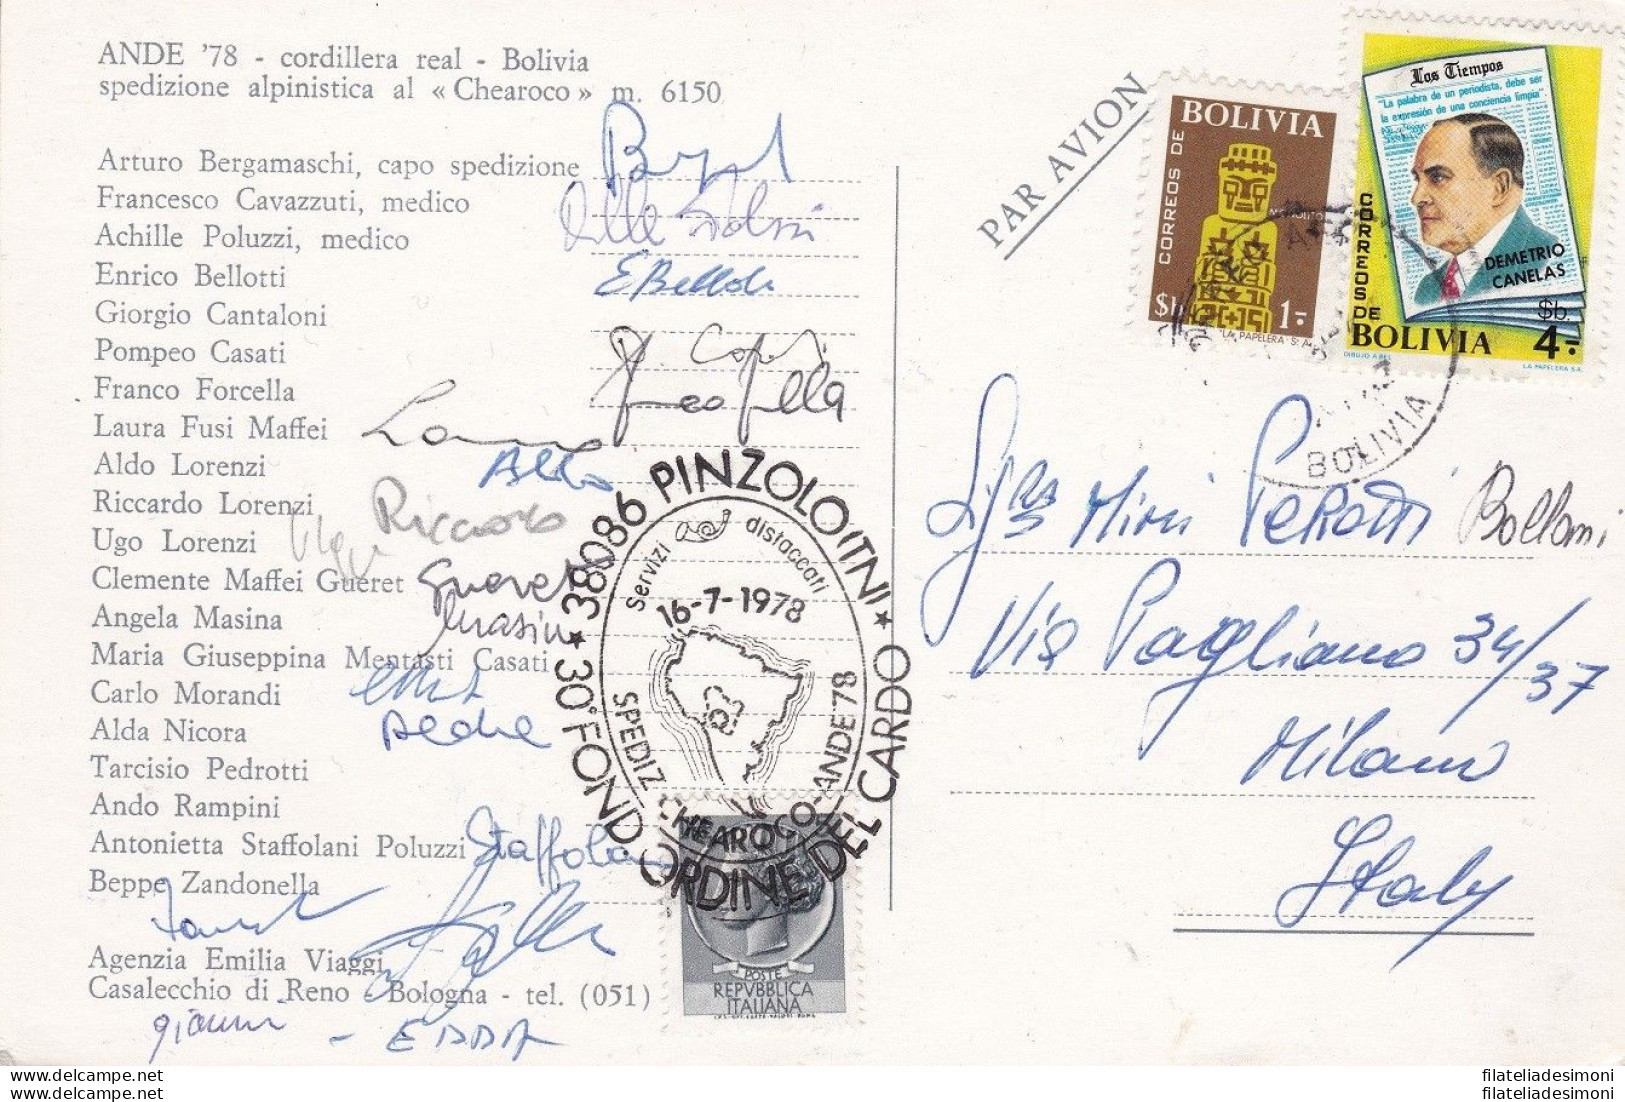 ANDE '78 - cordillera real - Bolivia
spedizione alpinistica al « Chearoco » m. 6150
Arturo Bergamaschi, capo spedizione
Francesco Cavazzuti, medico
Achille Poluzzi, medico
Enrico Bellotti
EBellotti
Giorgio Cantaloni
Pompeo Casati
Franco Forcella
Laura Fusi Maffei
Laura
Aldo Lorenzi
Aldo
Riccardo Lorenzi
Riccardo
Ugo Lorenzi
Ugo
Clemente Maffei Gueret
Gueret
Angela Masina
Masina
Maria Giuseppina Mentasti Casati
Carlo Morandi
Alda Nicora
Tarcisio Pedrotti
Ando Rampini
Antonietta Staffolani Poluzzi
Staffolani
Beppe Zandonella
Agenzia Emilia Viaggi
Casalecchio di Reno - Bologna - tel. (051)
gianni - EDDA
38086 PINZOLO (TN) ★ 30° FOND. ORDINE DEL CARDO ★
servizi distaccati
16-7-1978
SPEDIZ. CHEAROCO-ANDE '78
POSTE
REPVBBLICA
ITALIANA
PAR AVION
BOLIVIA
CORREOS DE
MONOLITO
$b. 1.-
LA PAPELERA S.A.
Los Tiempos
"La palabra de un periodista, debe ser
la expresión de una conciencia limpia"
DEMETRIO
CANELAS
CORREOS DE
$b.
BOLIVIA 4.-
DIBUJO ABEL
LA PAPELERA S.A.
BOLIVIA
Mimi Perotti
Via Pagliano 34/37
Milano
Italy
filateliadesimoni.com
filateliadesimoni.com
filateliadesimoni
filateliadesimoni